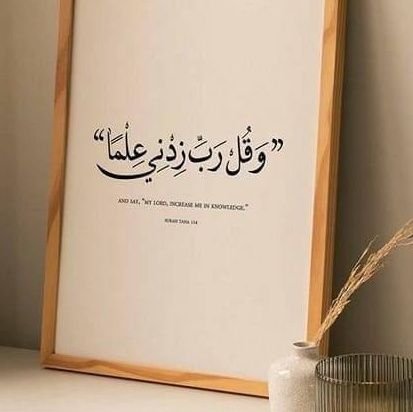 ”وَقُل رَبِّ زِدْنِي عِلْمًا“
AND SAY, "MY LORD, INCREASE ME IN KNOWLEDGE."
SURAH TAHA 114